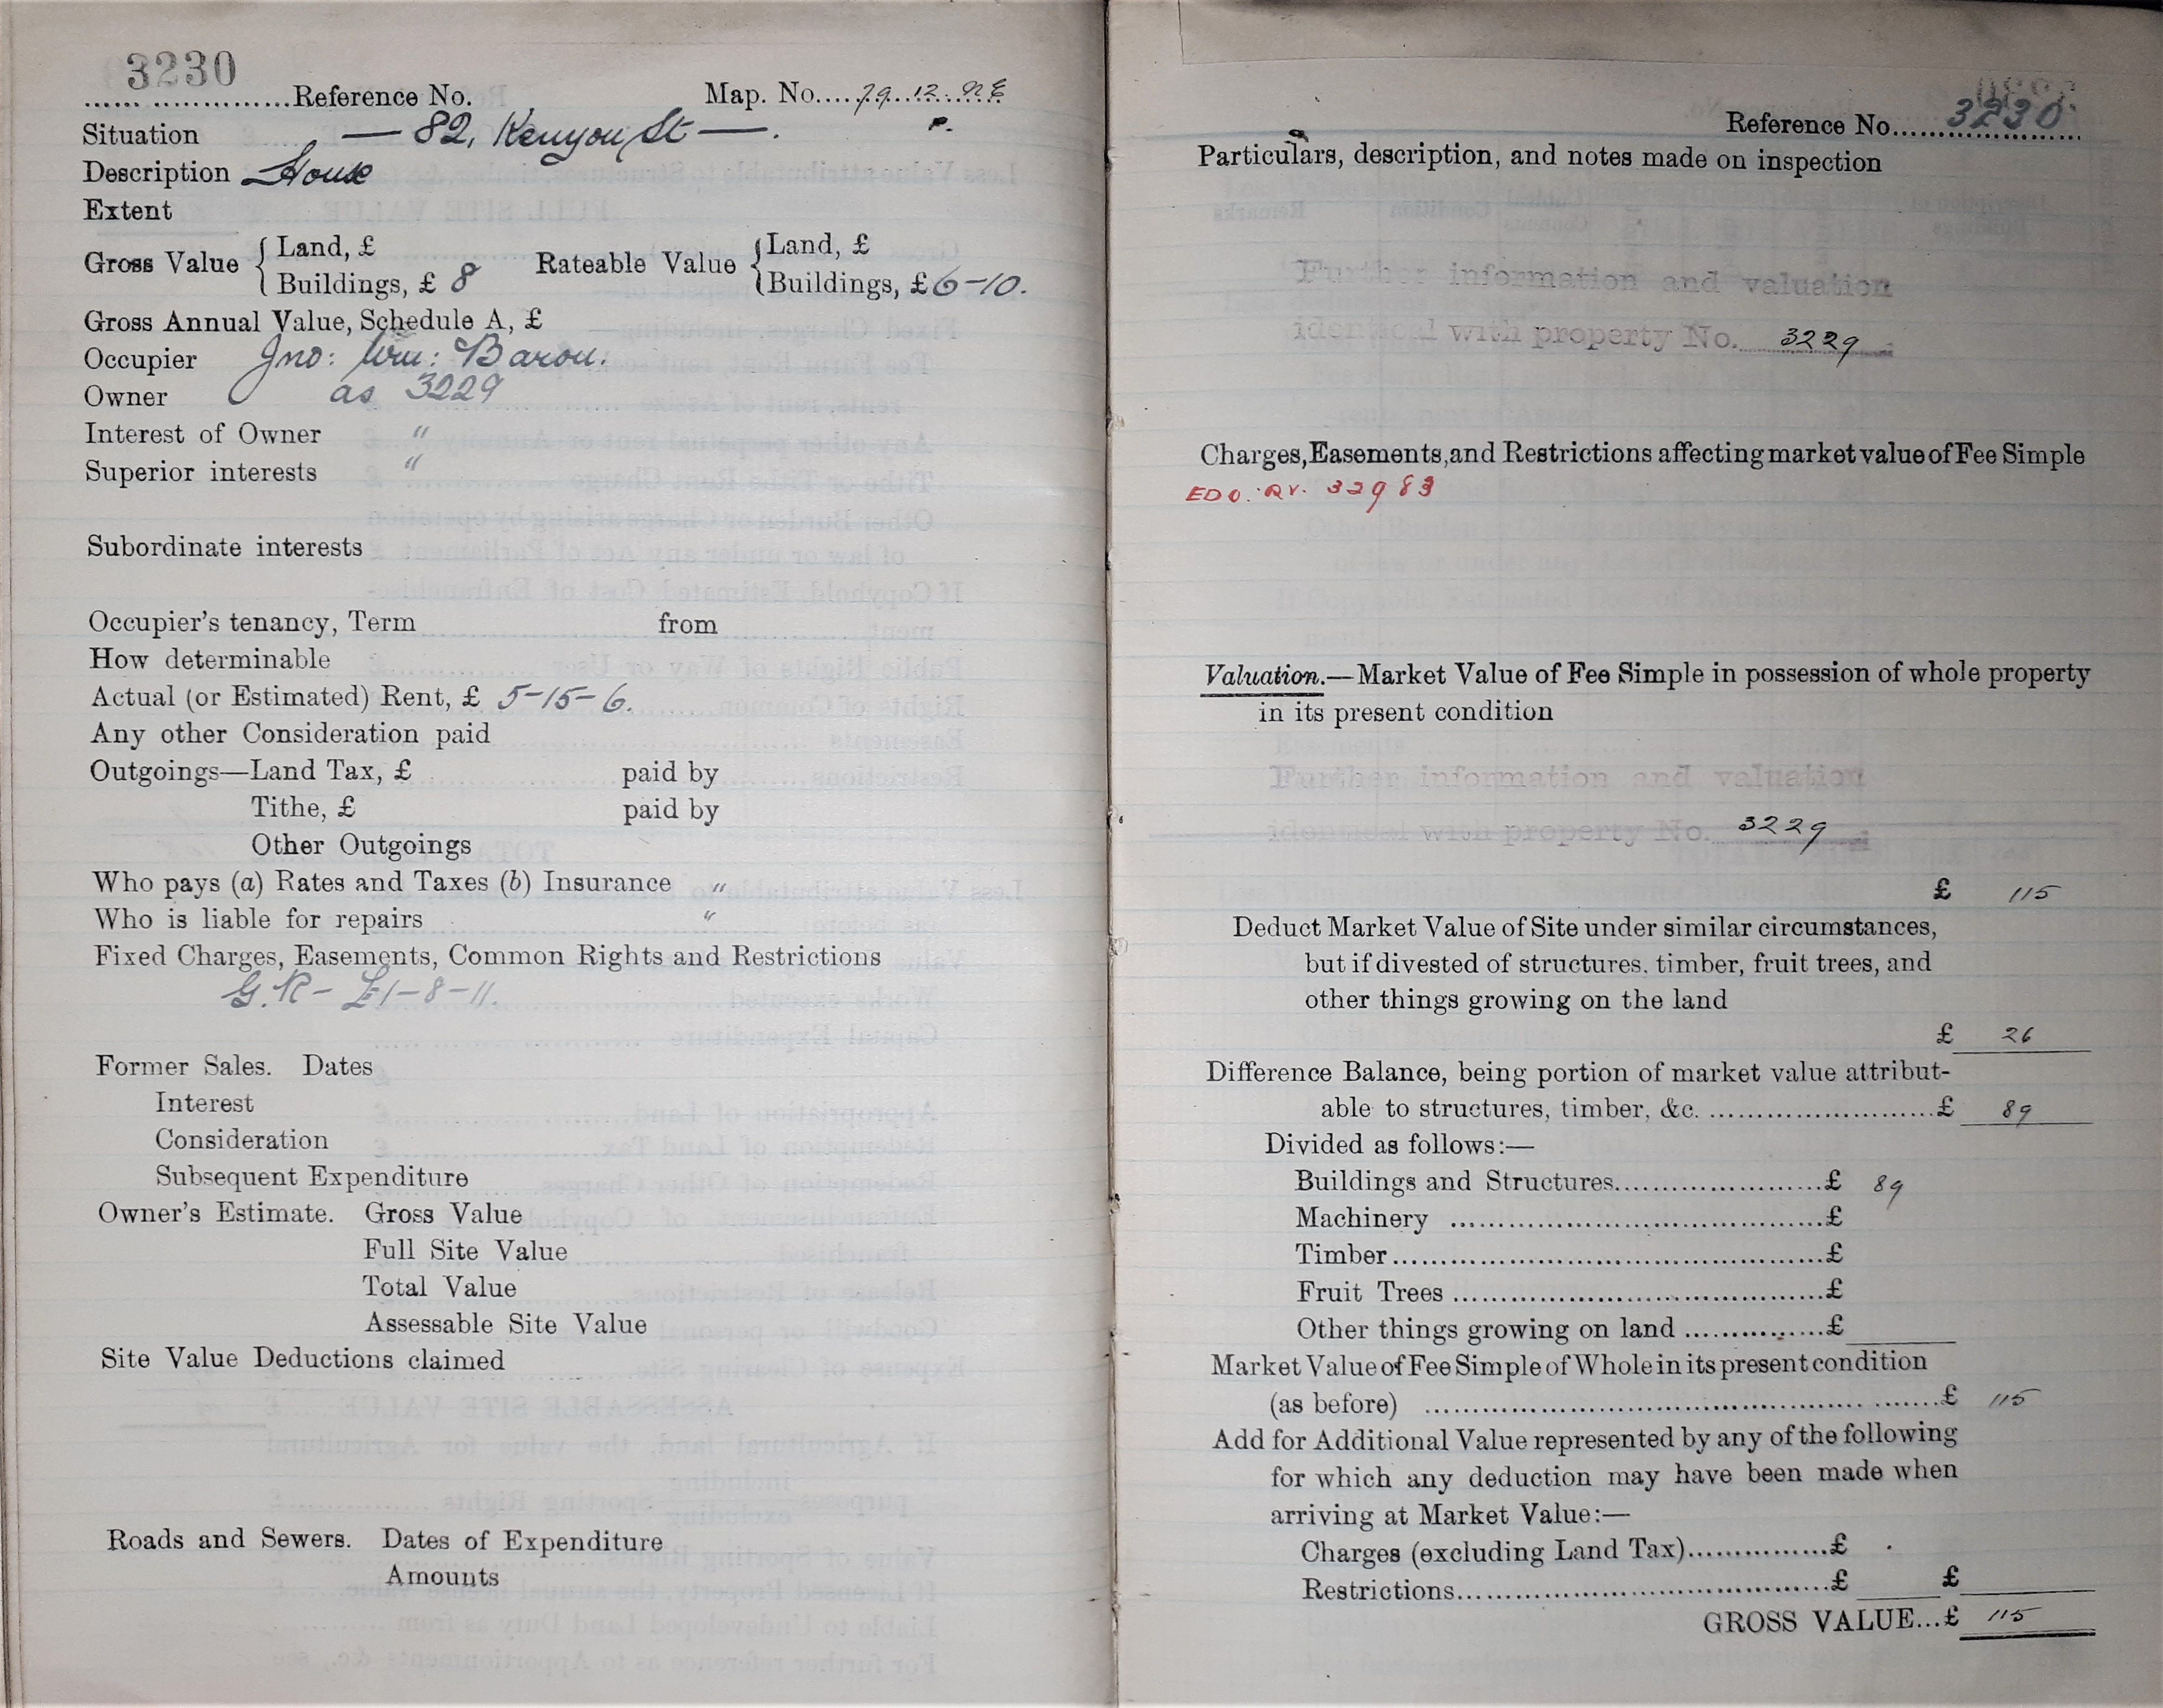 3230
Reference No. Map. No. 79. 12. NE
Situation — 82, Kenyon St —. P.
Description House
Extent
Gross Value { Land, £ Rateable Value { Land, £
Buildings, £ 8 Buildings, £ 6-10.
Gross Annual Value, Schedule A, £
Occupier Jno: Wm: Baron.
Owner as 3229
Interest of Owner "
Superior interests "
Subordinate interests
Occupier's tenancy, Term from
How determinable
Actual (or Estimated) Rent, £ 5-15-6.
Any other Consideration paid
Outgoings—Land Tax, £ paid by
Tithe, £ paid by
Other Outgoings
Who pays (a) Rates and Taxes (b) Insurance "
Who is liable for repairs "
Fixed Charges, Easements, Common Rights and Restrictions
G.R - £1-8-11.
Former Sales. Dates
Interest
Consideration
Subsequent Expenditure
Owner's Estimate. Gross Value
Full Site Value
Total Value
Assessable Site Value
Site Value Deductions claimed
Roads and Sewers. Dates of Expenditure
Amounts
Reference No. 3230
Particulars, description, and notes made on inspection
Further information and valuation
identical with property No. 3229
Charges, Easements, and Restrictions affecting market value of Fee Simple
32983
Valuation.—Market Value of Fee Simple in possession of whole property
in its present condition
Further information and valuation
identical with property No. 3229
£ 115
Deduct Market Value of Site under similar circumstances,
but if divested of structures, timber, fruit trees, and
other things growing on the land
£ 26
Difference Balance, being portion of market value attribut-
able to structures, timber, &c. £ 89
Divided as follows:—
Buildings and Structures £ 89
Machinery £
Timber £
Fruit Trees £
Other things growing on land £
Market Value of Fee Simple of Whole in its present condition
(as before) £ 115
Add for Additional Value represented by any of the following
for which any deduction may have been made when
arriving at Market Value:—
Charges (excluding Land Tax) £
Restrictions £ £
GROSS VALUE...£ 115